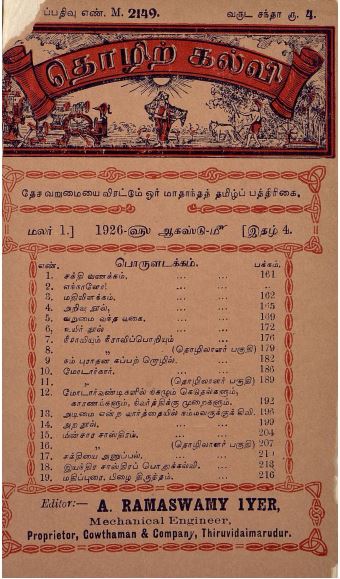 ப்பதிவு எண். M. 2149. வருட சந்தா ரூ. 4.
தொழிற் கல்வி
தேச வறுமையை விரட்டும் ஓர் மாதாந்தத் தமிழ்ப் பத்திரிகை,
மலர் 1.] 1926-ஹு ஆகஸ்டு-மீ [இதழ் 4.
எண். பொருளடக்கம். பக்கம்.
1. சக்தி வணக்கம், ... ... 161
2. எக்காளோ! ... ... ,,
3. மதிவிளக்கம், ... ... 162
4. அறிவு நூல், ... ... 165
5. வறுமை வந்த வகை, ... ... 169
6. உயிர் நூல் ... ... 172
7. நீராவியும் நீராவிப்பொறியும் ... 176
8. ,, (தொழிலாளர் பகுதி) 179
9. நம் புராதன கப்பற் றொழில். ... 182
10. மோடார்கார். ... ... 186
11. ,, (தொழிலாளர் பகுதி) 189
12. மோடார்வண்டிகளில் நிகழும் கெடுதல்களும்,
காரணங்களும், நிவர்த்திக்கு முறைகளும். 192
13. அடிமை என்ற வார்த்தையில் நம்மவருக்குள் 196
14. அற நூல். ... ... 199
15. மின்சார சாஸ்திரம். ... ... 204
16. ,, (தொழிலாளர் பகுதி) 207
17. சக்தியை அனுப்பல். ... ...
18. இயந்திர சாஸ்திரப் பொதுக்கல்வி. ... 213
19. மதிப்புரை, பிழை திருத்தம். ... 216
Editor:— A. RAMASWAMY IYER,
Mechanical Engineer,
Proprietor, Gowthaman & Company, Thiruvidaimarudur.